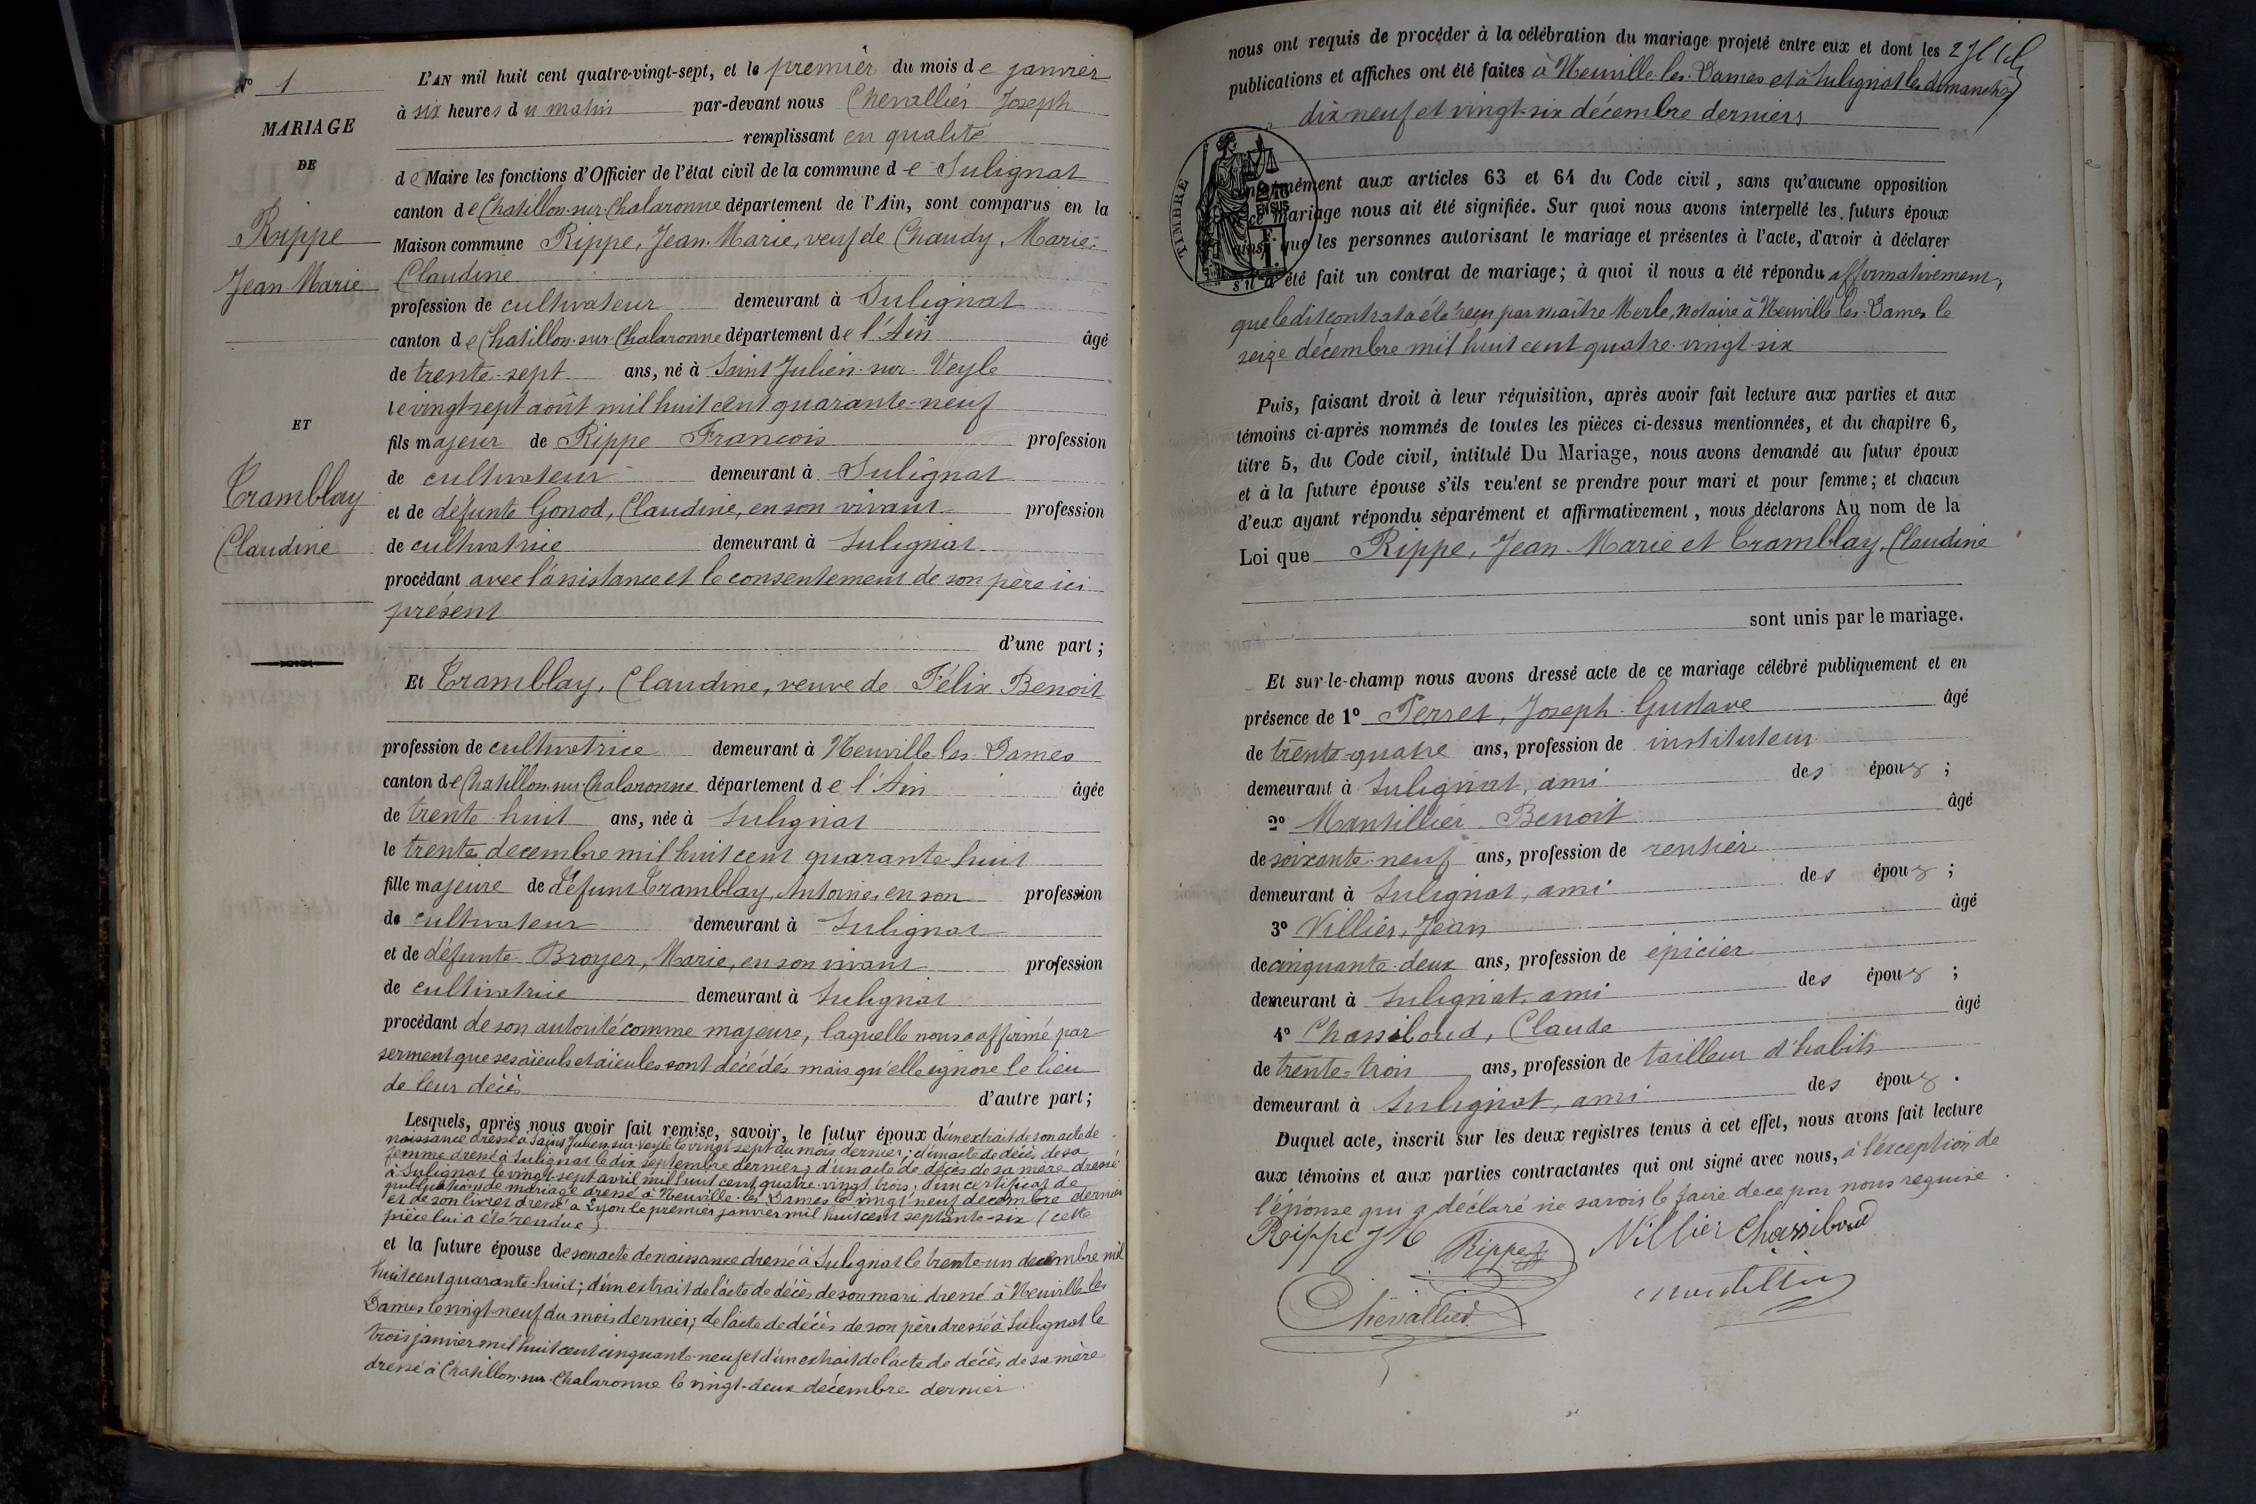 N° 1
MARIAGE
DE
Rippe
Jean Marie
ET
Tramblay
Claudine
L'AN mil huit cent quatre-vingt-sept, et le premier du mois de janvier
à six heures du matin par-devant nous Chevallier Joseph
remplissant en qualité
de Maire les fonctions d'Officier de l'état civil de la commune de Sulignat
canton de Chatillon-sur-Chalaronne département de l'Ain, sont comparus en la
Maison commune Rippe, Jean-Marie, veuf de Chaudy, Marie-
Claudine
profession de cultivateur demeurant à Sulignat
canton de Chatillon-sur-Chalaronne département de l'Ain âgé
de trente-sept ans, né à Saint Julien-sur-Veyle
le vingt sept août mil huit cent quarante-neuf
fils majeur de Rippe François profession
de cultivateur demeurant à Sulignat
et de défunte Gonod, Claudine, en son vivant profession
de cultivatrice demeurant à Sulignat
procédant avec l'assistance et le consentement de son père ici
présent
d'une part ;
Et Tramblay, Claudine, veuve de Félix Benoit
profession de cultivatrice demeurant à Neuville-les-Dames
canton de Chatillon-sur-Chalaronne département de l'Ain âgée
de trente huit ans, née à Sulignat
le trente décembre mil huit cent quarante-huit
fille majeure de défunt Tramblay, Antoine, en son profession
de cultivateur demeurant à Sulignat
et de défunte Broyer, Marie, en son vivant profession
de cultivatrice demeurant à Sulignat
procédant de son autorité comme majeure, laquelle nous a affirmé par
serment que ses aïeuls et aïeules sont décédés mais qu'elle ignore le lieu
de leur décès
d'autre part ;
Lesquels, après nous avoir fait remise, savoir, le futur époux d'un extrait de son acte de
naissance dressé à Saint Julien-sur-Veyle le vingt sept du mois dernier ; d'un acte de décès de sa
femme dressé à Sulignat le dix septembre dernier ; d'un acte de décès de sa mère dressé
à Sulignat le vingt-sept avril mil huit cent quatre-vingt trois ; d'un certificat de
publications de mariage dressé à Neuville-les-Dames le vingt-neuf décembre dernier
et de son livret dressé à Lyon le premier janvier mil huit cent septante-six (cette
pièce lui a été rendue)
et la future épouse de son acte de naissance dressé à Sulignat le trente-un décembre mil
huit cent quarante-huit ; d'un extrait de l'acte de décès de son mari dressé à Neuville-les-
Dames le vingt-neuf du mois dernier ; de l'acte de décès de son père dressé à Sulignat le
trois janvier mil huit cent cinquante-neuf et d'un extrait de l'acte de décès de sa mère
dressé à Chatillon-sur-Chalaronne le vingt-deux décembre dernier
nous ont requis de procéder à la célébration du mariage projeté entre eux et dont les
publications et affiches ont été faites à Neuville-les-Dames et à Sulignat les dimanches
dix-neuf et vingt-six décembre derniers
TIMBRE
conformément aux articles 63 et 64 du Code civil, sans qu'aucune opposition
mariage nous ait été signifiée. Sur quoi nous avons interpellé les futurs époux
ainsi que les personnes autorisant le mariage et présentes à l'acte, d'avoir à déclarer
s'il a été fait un contrat de mariage ; à quoi il nous a été répondu affirmativement,
que le dit contrat a été reçu par maître Merle, notaire à Neuville-les-Dames le
seize décembre mil huit cent quatre-vingt-six
Puis, faisant droit à leur réquisition, après avoir fait lecture aux parties et aux
témoins ci-après nommés de toutes les pièces ci-dessus mentionnées, et du chapitre 6,
titre 5, du Code civil, intitulé Du Mariage, nous avons demandé au futur époux
et à la future épouse s'ils veulent se prendre pour mari et pour femme ; et chacun
d'eux ayant répondu séparément et affirmativement, nous déclarons Au nom de la
Loi que Rippe, Jean-Marie et Tramblay, Claudine
sont unis par le mariage.
Et sur-le-champ nous avons dressé acte de ce mariage célébré publiquement et en
présence de 1° Perret, Joseph Gustave âgé
de trente-quatre ans, profession de instituteur
demeurant à Sulignat, ami des époux ;
2° Mantillier Benoit âgé
de soixante-neuf ans, profession de rentier
demeurant à Sulignat, ami des époux ;
3° Villier, Jean âgé
de cinquante-deux ans, profession de épicier
demeurant à Sulignat, ami des époux ;
4° Chassiboud, Claude âgé
de trente-trois ans, profession de tailleur d'habits
demeurant à Sulignat, ami des époux.
Duquel acte, inscrit sur les deux registres tenus à cet effet, nous avons fait lecture
aux témoins et aux parties contractantes qui ont signé avec nous, à l'exception de
l'épouse qui a déclaré ne savoir le faire de ce par nous requise.
Rippe J M Rippe Villier Chassiboud
Chevallier